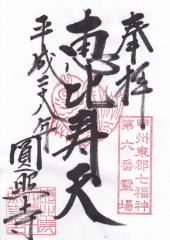 奉拝
甲州東郡七福神
第六番霊場
恵比寿天
平成二八年
圓照寺